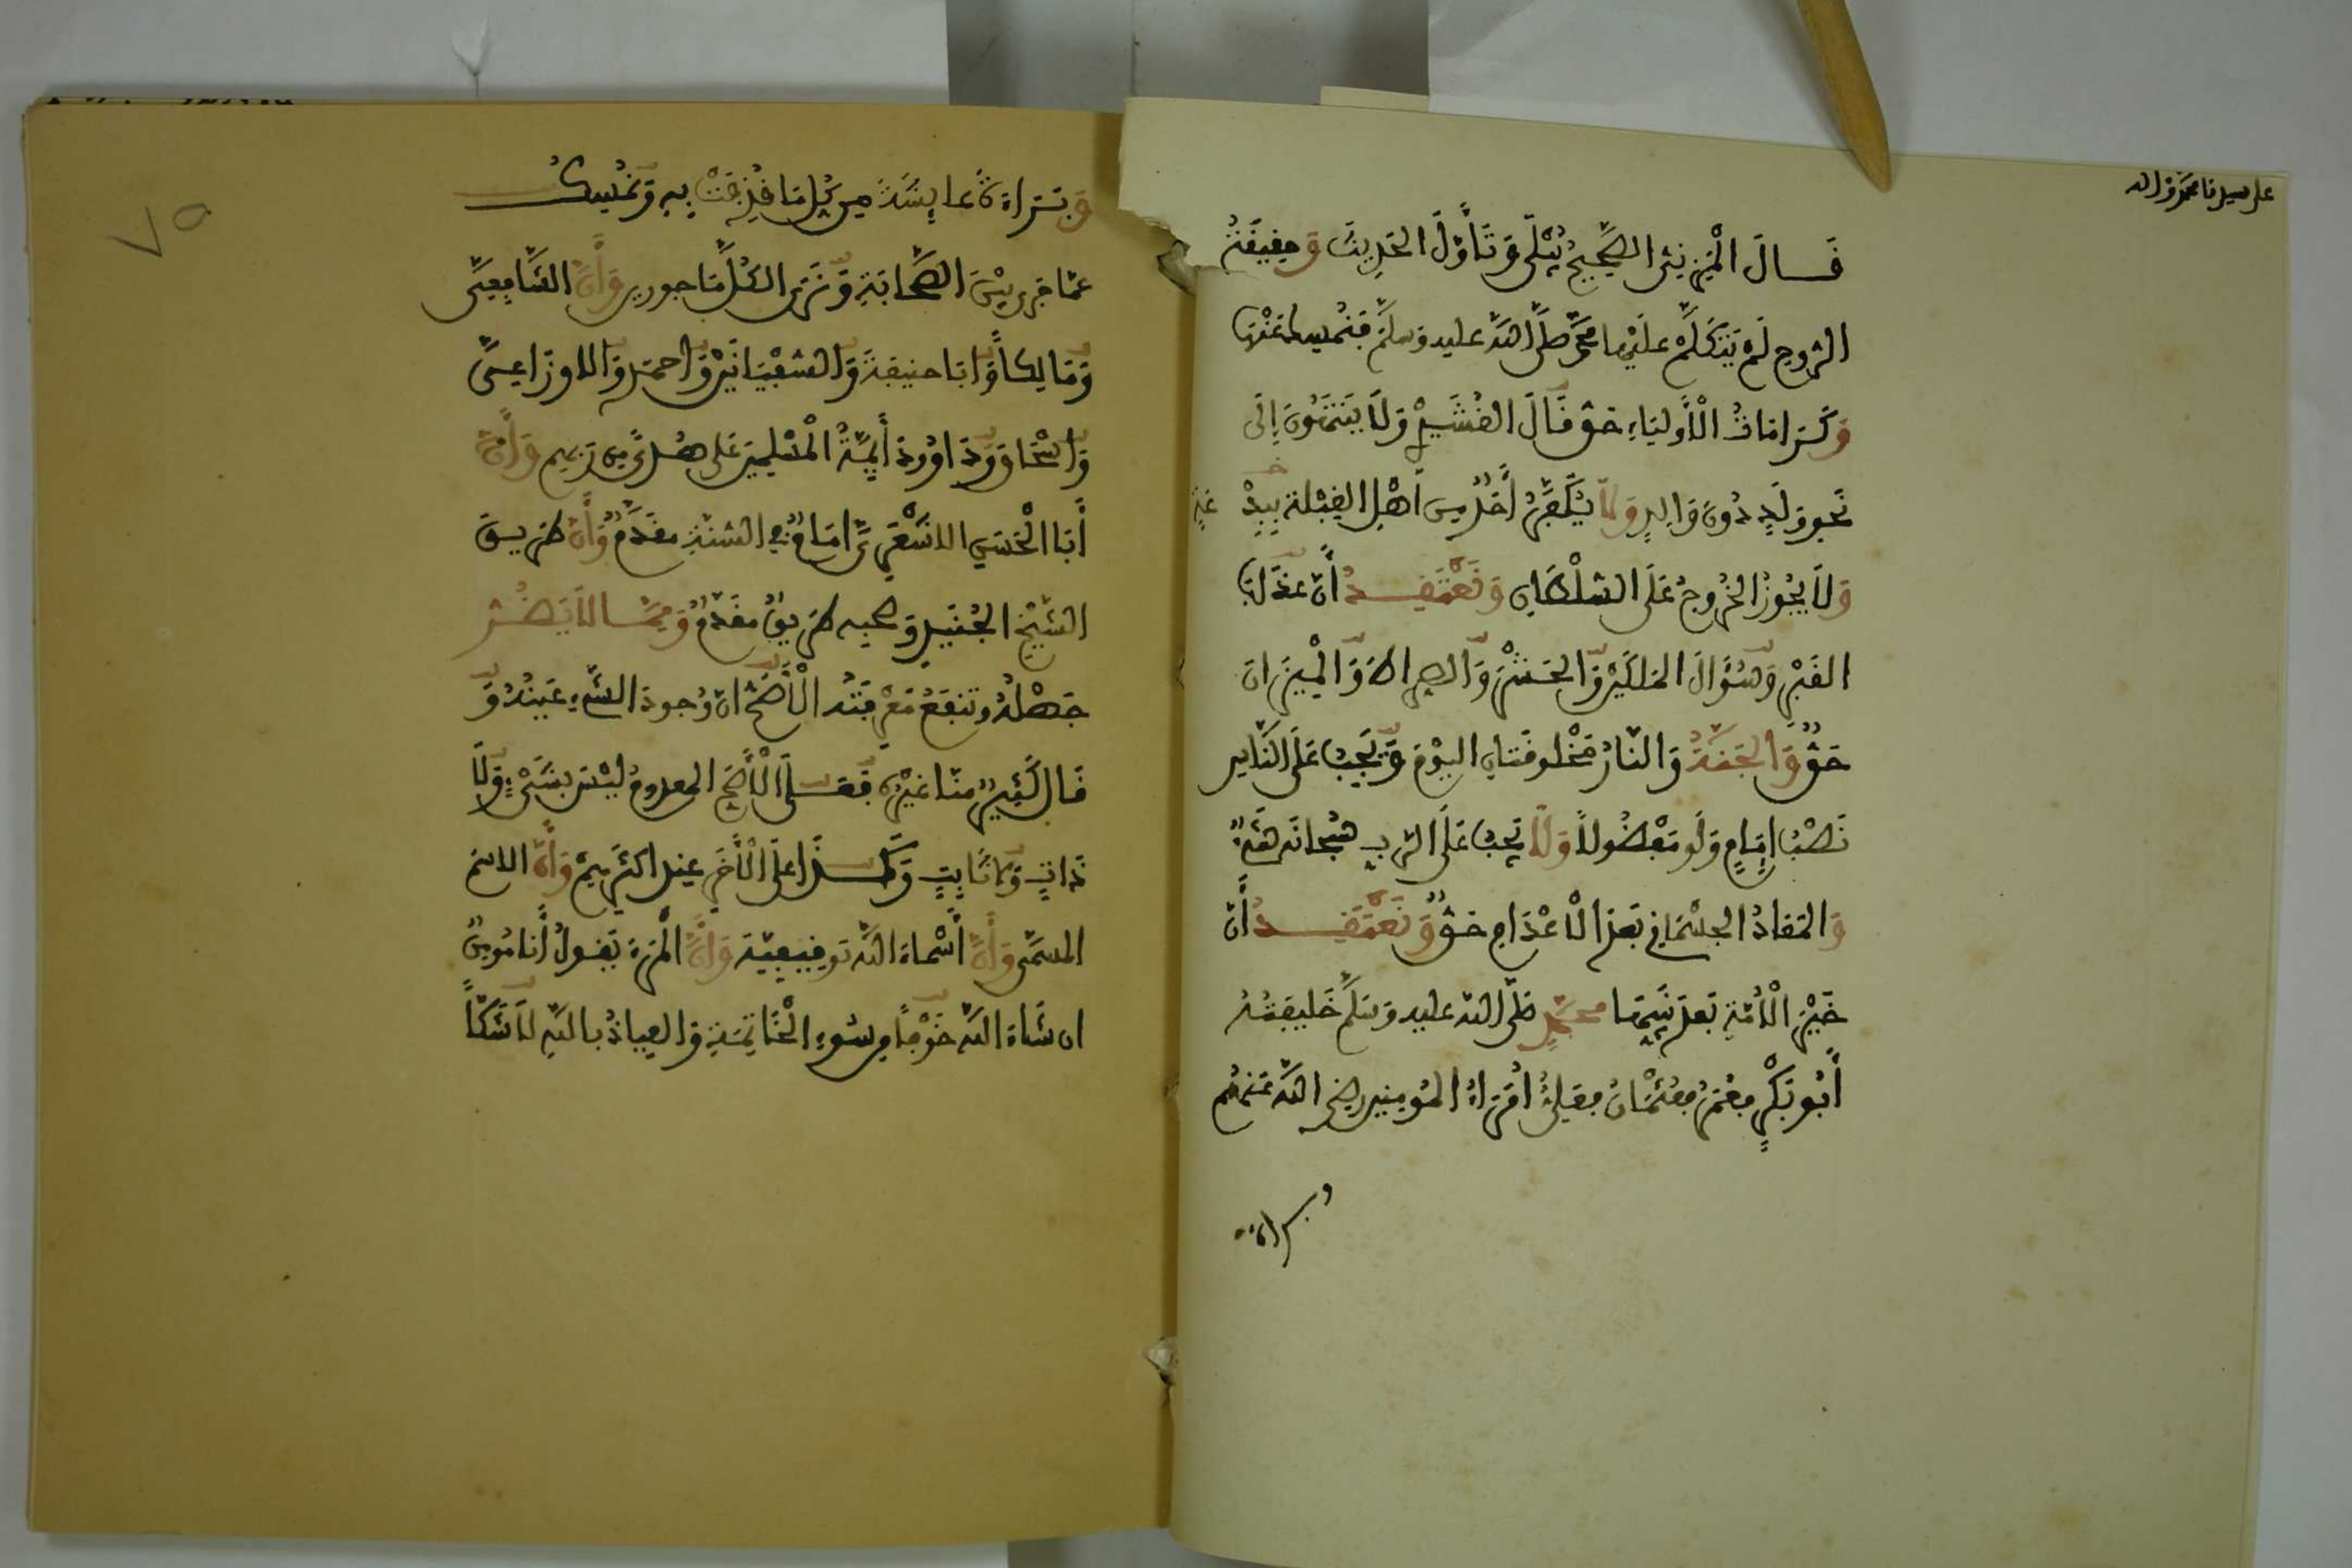 على سيدنا محمد وءاله
قال المزني الصحيح يبلى وتأول الحديث وحقيقة
الروح لم يتكلم عليها محمد صلى الله عليه وسلم فنمسك عنها
وكرامات الأولياء حق قال القشيري ولا ينتهون إلى
نحو ولد دون والد ولا نكفر أحدا من أهل القبلة ببد عة
ولا يجوز الخروج على السلطان ونعتقد أن عذاب
القبر وسؤال الملكين والحشر والصراط والميزان
حق والجنة والنار مخلوقتان اليوم ويجب على الناس
نصب إمام ولو مفضولا ولا يجب على الرب سبحانه شيء
والمعاد الجسماني بعد الاعدام حق ونعتقد أن
خير الأمة بعد نبيها محمد صلى الله عليه وسلم خليفته
أبو بكر فعمر فعثمان فعلي أمراء المؤمنين رضي الله عنهم
وبراءة
وبراءة عايشة من كل ما قذفت به ونمسك
عما جرى بين الصحابة ونرى الكل ماجورين وأن الشافعي
ومالكا وابا حنيفة والسفيانين واحمد والاوزاعي
واسحاق وداوود أيمة المسلمين على هدى من ربهم وأن
أبا الحسن الاشعري امام في السنة مقدم وأن طريق
الشيخ الجنيد وصحبه طريق مقدم ومما لا يضر
جهله وتنفع معرفته الأصح ان وجود الشيء عينه و
قال كثير منا غيره فعلى الأصح المعدوم ليس بشيء ولا
ذات ولا ثابت وكذا على الأخر عند اكثرهم وأن الاسم
المسمى وأن أسماء الله توقيفية وأن المرء يقول أنا مومن
ان شاء الله خوفا من سوء الخاتمة والعياذ بالله لا شكا